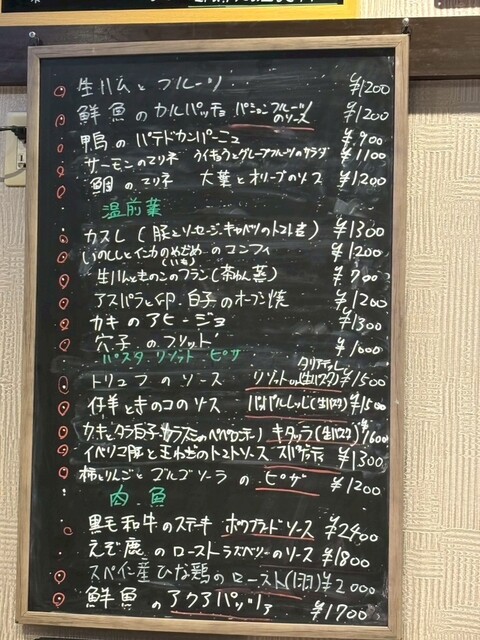 生ハムと フルーツ ¥1200
鮮魚の カルパッチョ パッションフルーツのソース ¥1200
鴨の パテドカンパーニュ ¥900
サーモンのマリネ ういきょうとグレープフルーツのサラダ ¥1100
鯛のマリネ 大葉とオリーブのソース ¥1200
温前菜
カスレ (豚とソーセージ、キャベツのトマト煮) ¥1300
いのししとインカのめざめ(いも)のコンフィ ¥1200
生ハムときのこのフラン (茶わん蒸) ¥700
アスパラと卵 白子のオーブン焼 ¥1200
カキのアヒージョ ¥1300
穴子のフリット ¥1000
パスタ リゾット ピザ
トリュフのソース リゾットor タリアテッレ(生パスタ) ¥1500
仔羊ときのこのソース パッパルデッレ(生パスタ) ¥1500
カキとタラ白子 カラスミのペペロンチーノ キタッラ(生パスタ) ¥1600
イベリコ豚と玉ねぎのトマトソース スパゲッティ ¥1300
柿とりんごと ゴルゴンゾーラの ピザ ¥1200
肉 魚
黒毛和牛のステーキ ポワブラードソース ¥2400
えぞ鹿のロースト ラズベリーのソース ¥1800
スペイン産ひな鶏のロースト(1羽) ¥2000
鮮魚の アクアパッツァ ¥1700